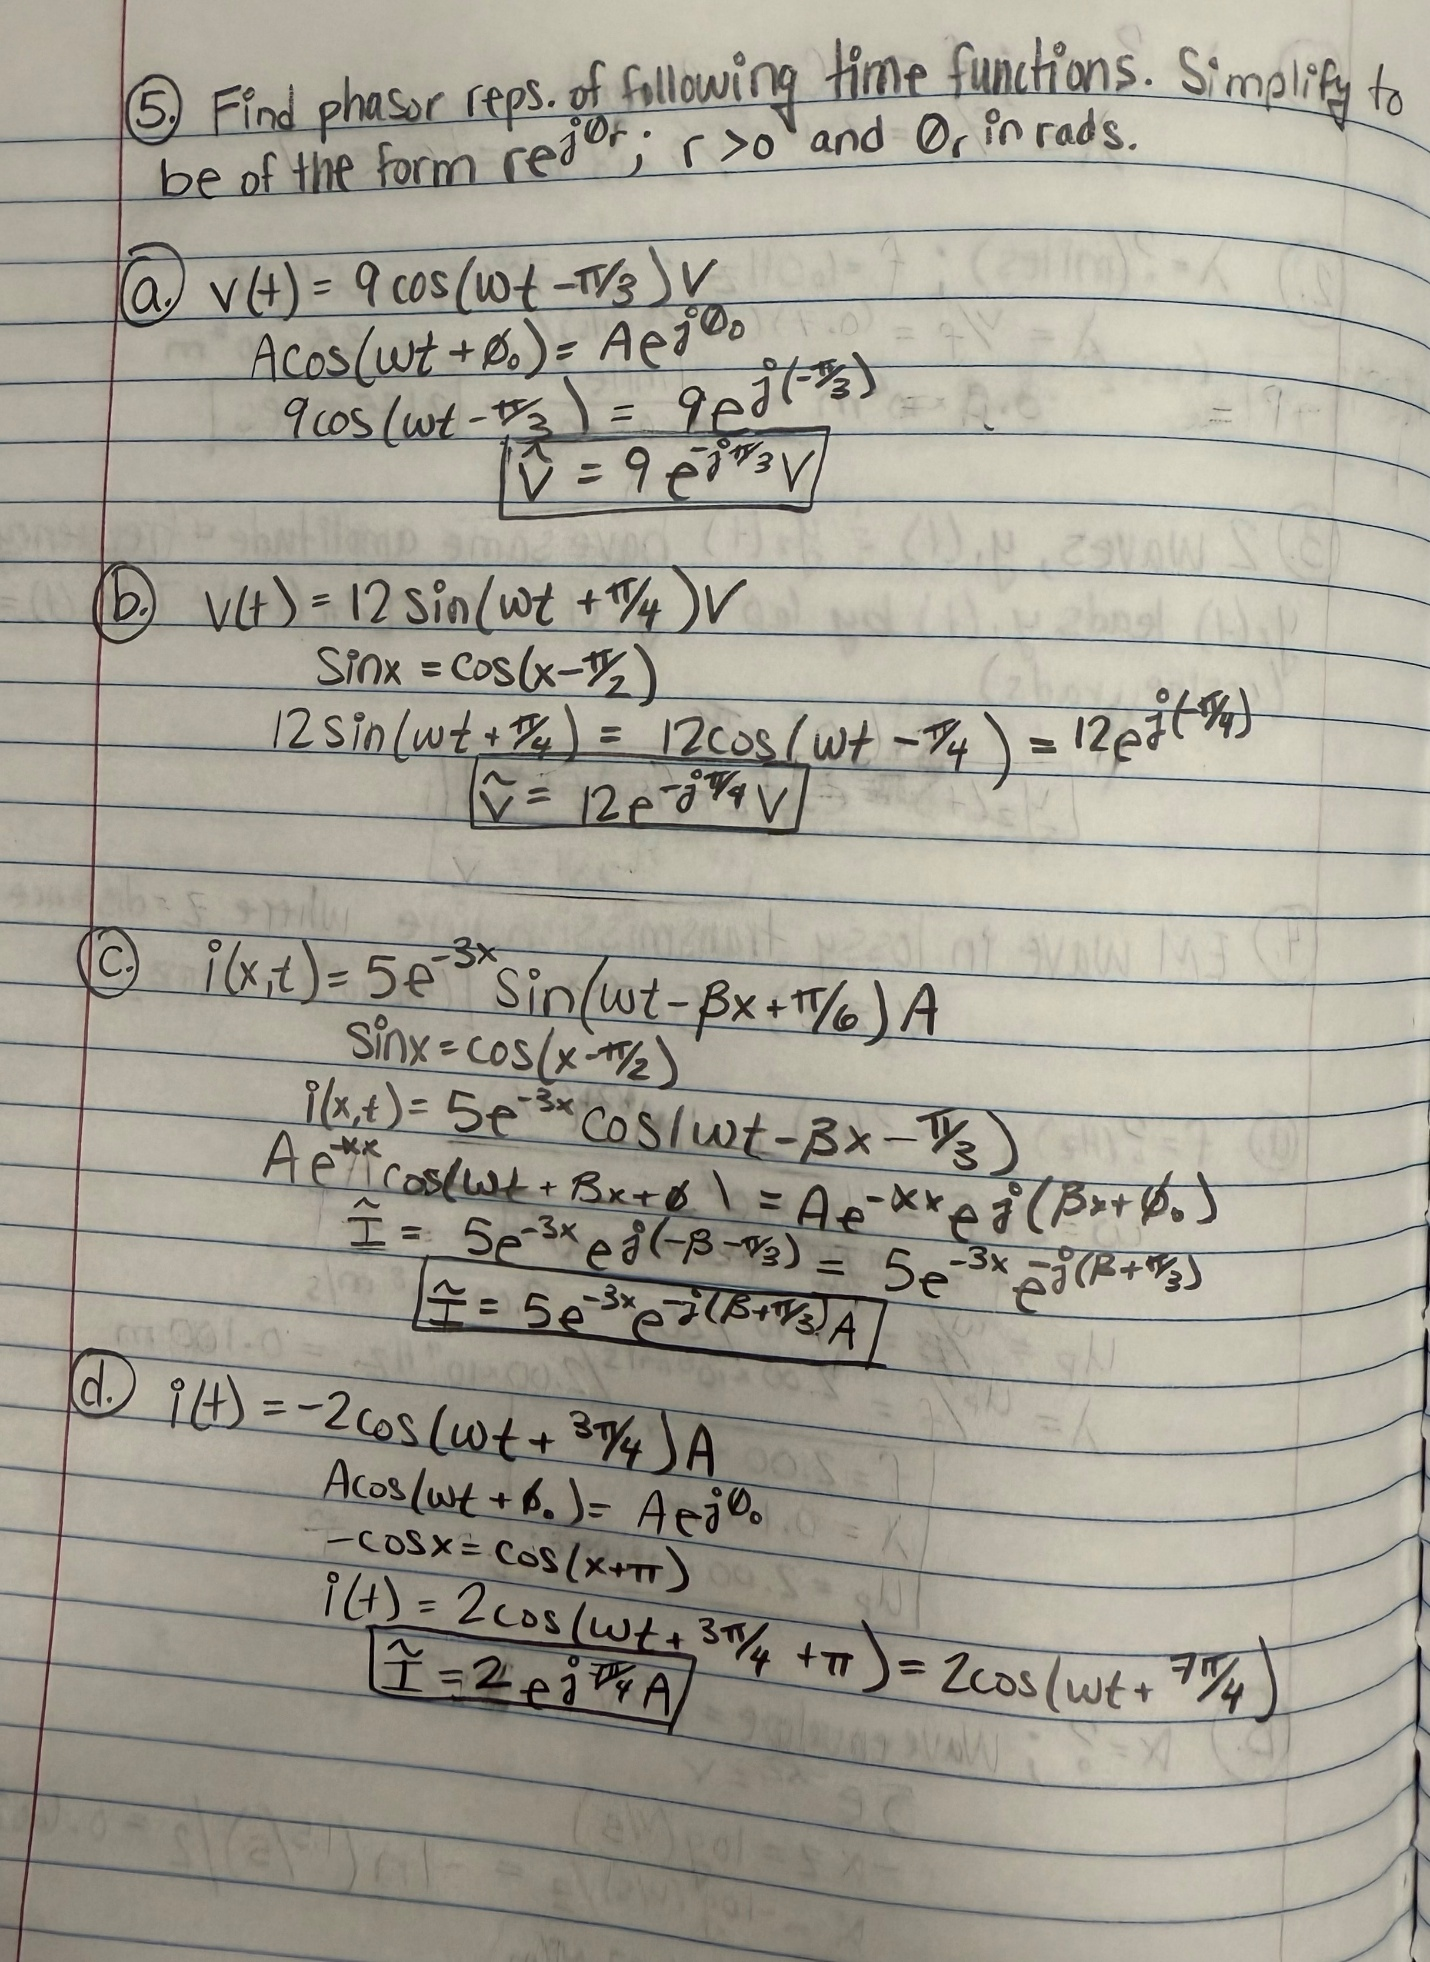 5. Find phasor reps. of following time functions. Simplify to
be of the form re^jθr; r>0 and θr in rads.
a. v(t) = 9cos(wt-π/3)V
Acos(wt+ø₀) = Ae^jø₀
9cos(wt-π/3) = 9e^j(-π/3)
Ṽ = 9e^-jπ/3 V
b. v(t) = 12sin(wt+π/4)V
sinx = cos(x-π/2)
12sin(wt+π/4) = 12cos(wt-π/4) = 12e^j(-π/4)
Ṽ = 12e^-jπ/4 V
c. i(x,t) = 5e^-3x sin(wt-βx+π/6)A
sinx = cos(x-π/2)
i(x,t) = 5e^-3x cos(wt-βx-π/3)
Ae^-αx cos(wt+βx+ø) = Ae^-αx e^j(βx+ø₀)
Ĩ = 5e^-3x e^j(-β-π/3) = 5e^-3x e^-j(β+π/3)
Ĩ = 5e^-3x e^-j(β+π/3) A
d. i(t) = -2cos(wt+3π/4)A
Acos(wt+ø₀) = Ae^jø₀
-cosx = cos(x+π)
i(t) = 2cos(wt+3π/4+π) = 2cos(wt+7π/4)